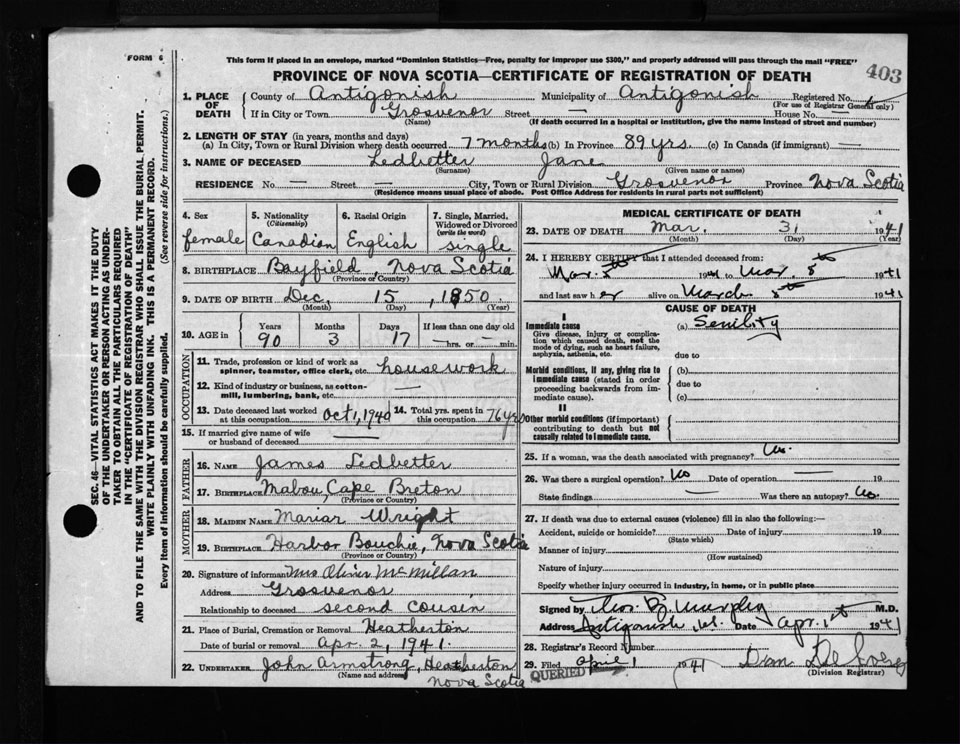 FORM 6
This form if placed in an envelope, marked "Dominion Statistics—Free, penalty for improper use $300," and properly addressed will pass through the mail "FREE"
403
PROVINCE OF NOVA SCOTIA—CERTIFICATE OF REGISTRATION OF DEATH
SEC. 46—VITAL STATISTICS ACT MAKES IT THE DUTY
OF THE UNDERTAKER OR PERSON ACTING AS UNDER-
TAKER TO OBTAIN ALL THE PARTICULARS REQUIRED
IN THE "CERTIFICATE OF REGISTRATION OF DEATH"
AND TO FILE THE SAME WITH THE DIVISION REGISTRAR WHO SHALL ISSUE THE BURIAL PERMIT.
WRITE PLAINLY WITH UNFADING INK. THIS IS A PERMANENT RECORD.
Every item of information should be carefully supplied. (See reverse side for instructions.)
1. PLACE OF DEATH
County of Antigonish Municipality of Antigonish Registered No. 1
(For use of Registrar General only)
If in City or Town Grosvenor Street — House No. —
(Name) (If death occurred in a hospital or institution, give the name instead of street and number)
2. LENGTH OF STAY (in years, months and days)
(a) In City, Town or Rural Division where death occurred 7 months (b) In Province 89 yrs. (c) In Canada (if immigrant) —
3. NAME OF DECEASED Ledbetter Jane
(Surname) (Given name or names)
RESIDENCE No. — Street — City, Town or Rural Division Grosvenor Province Nova Scotia
(Residence means usual place of abode. Post Office Address for residents in rural parts not sufficient)
4. Sex female
5. Nationality (Citizenship) Canadian
6. Racial Origin English
7. Single, Married, Widowed or Divorced (write the word) single
8. BIRTHPLACE Bayfield, Nova Scotia
(Province or Country)
9. DATE OF BIRTH Dec. 15, 1850
(Month) (Day) (Year)
10. AGE in Years 90 Months 3 Days 17 If less than one day old — hrs. or — min.
OCCUPATION
11. Trade, profession or kind of work as spinner, teamster, office clerk, etc. housework
12. Kind of industry or business, as cotton-mill, lumbering, bank, etc. —
13. Date deceased last worked at this occupation Oct 1, 1940 14. Total yrs. spent in this occupation 76 yrs
15. If married give name of wife or husband of deceased —
FATHER
16. NAME James Ledbetter
17. BIRTHPLACE Mabou, Cape Breton
(Province or Country)
MOTHER
18. MAIDEN NAME Mariar Wright
19. BIRTHPLACE Harbor Bouchie, Nova Scotia
(Province or Country)
20. Signature of informant Mrs Oliver McMillan
Address Grosvenor
Relationship to deceased second cousin
21. Place of Burial, Cremation or Removal Heatherton
Date of burial or removal Apr. 2, 1941.
22. UNDERTAKER John Armstrong, Heatherton
(Name and address) Nova Scotia
MEDICAL CERTIFICATE OF DEATH
23. DATE OF DEATH Mar. 31 1941
(Month) (Day) (Year)
24. I HEREBY CERTIFY that I attended deceased from:
Mar. 8th 1941 to Mar. 8th 1941
and last saw her alive on March 8th 1941
CAUSE OF DEATH
I
Immediate cause
Give disease, injury or complication which caused death, not the mode of dying, such as heart failure, asphyxia, asthenia, etc.
(a) Senility
due to
Morbid conditions, if any, giving rise to immediate cause (stated in order proceeding backwards from immediate cause).
(b)
due to
(c)
II
Other morbid conditions (if important) contributing to death but not causally related to immediate cause.
25. If a woman, was the death associated with pregnancy? No.
26. Was there a surgical operation? No Date of operation — 19
State findings — Was there an autopsy? No.
27. If death was due to external causes (violence) fill in also the following:—
Accident, suicide or homicide? Date of injury 19
(State which)
Manner of injury
(How sustained)
Nature of injury
Specify whether injury occurred in industry, in home, or in public place
Signed by Murphy M.D.
Address Antigonish, N.S. Date Apr. 1st 1941
28. Registrar's Record Number
29. Filed April 1 1941 Dan
(Division Registrar)
QUERIED